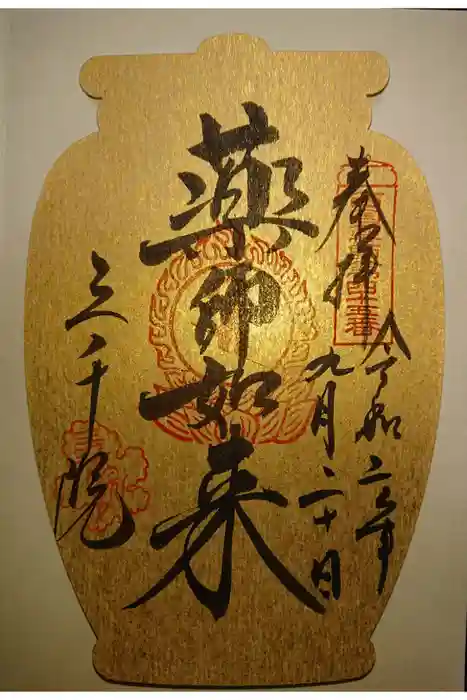 奉拝
令和二年
九月二十日
薬师如来
三千院